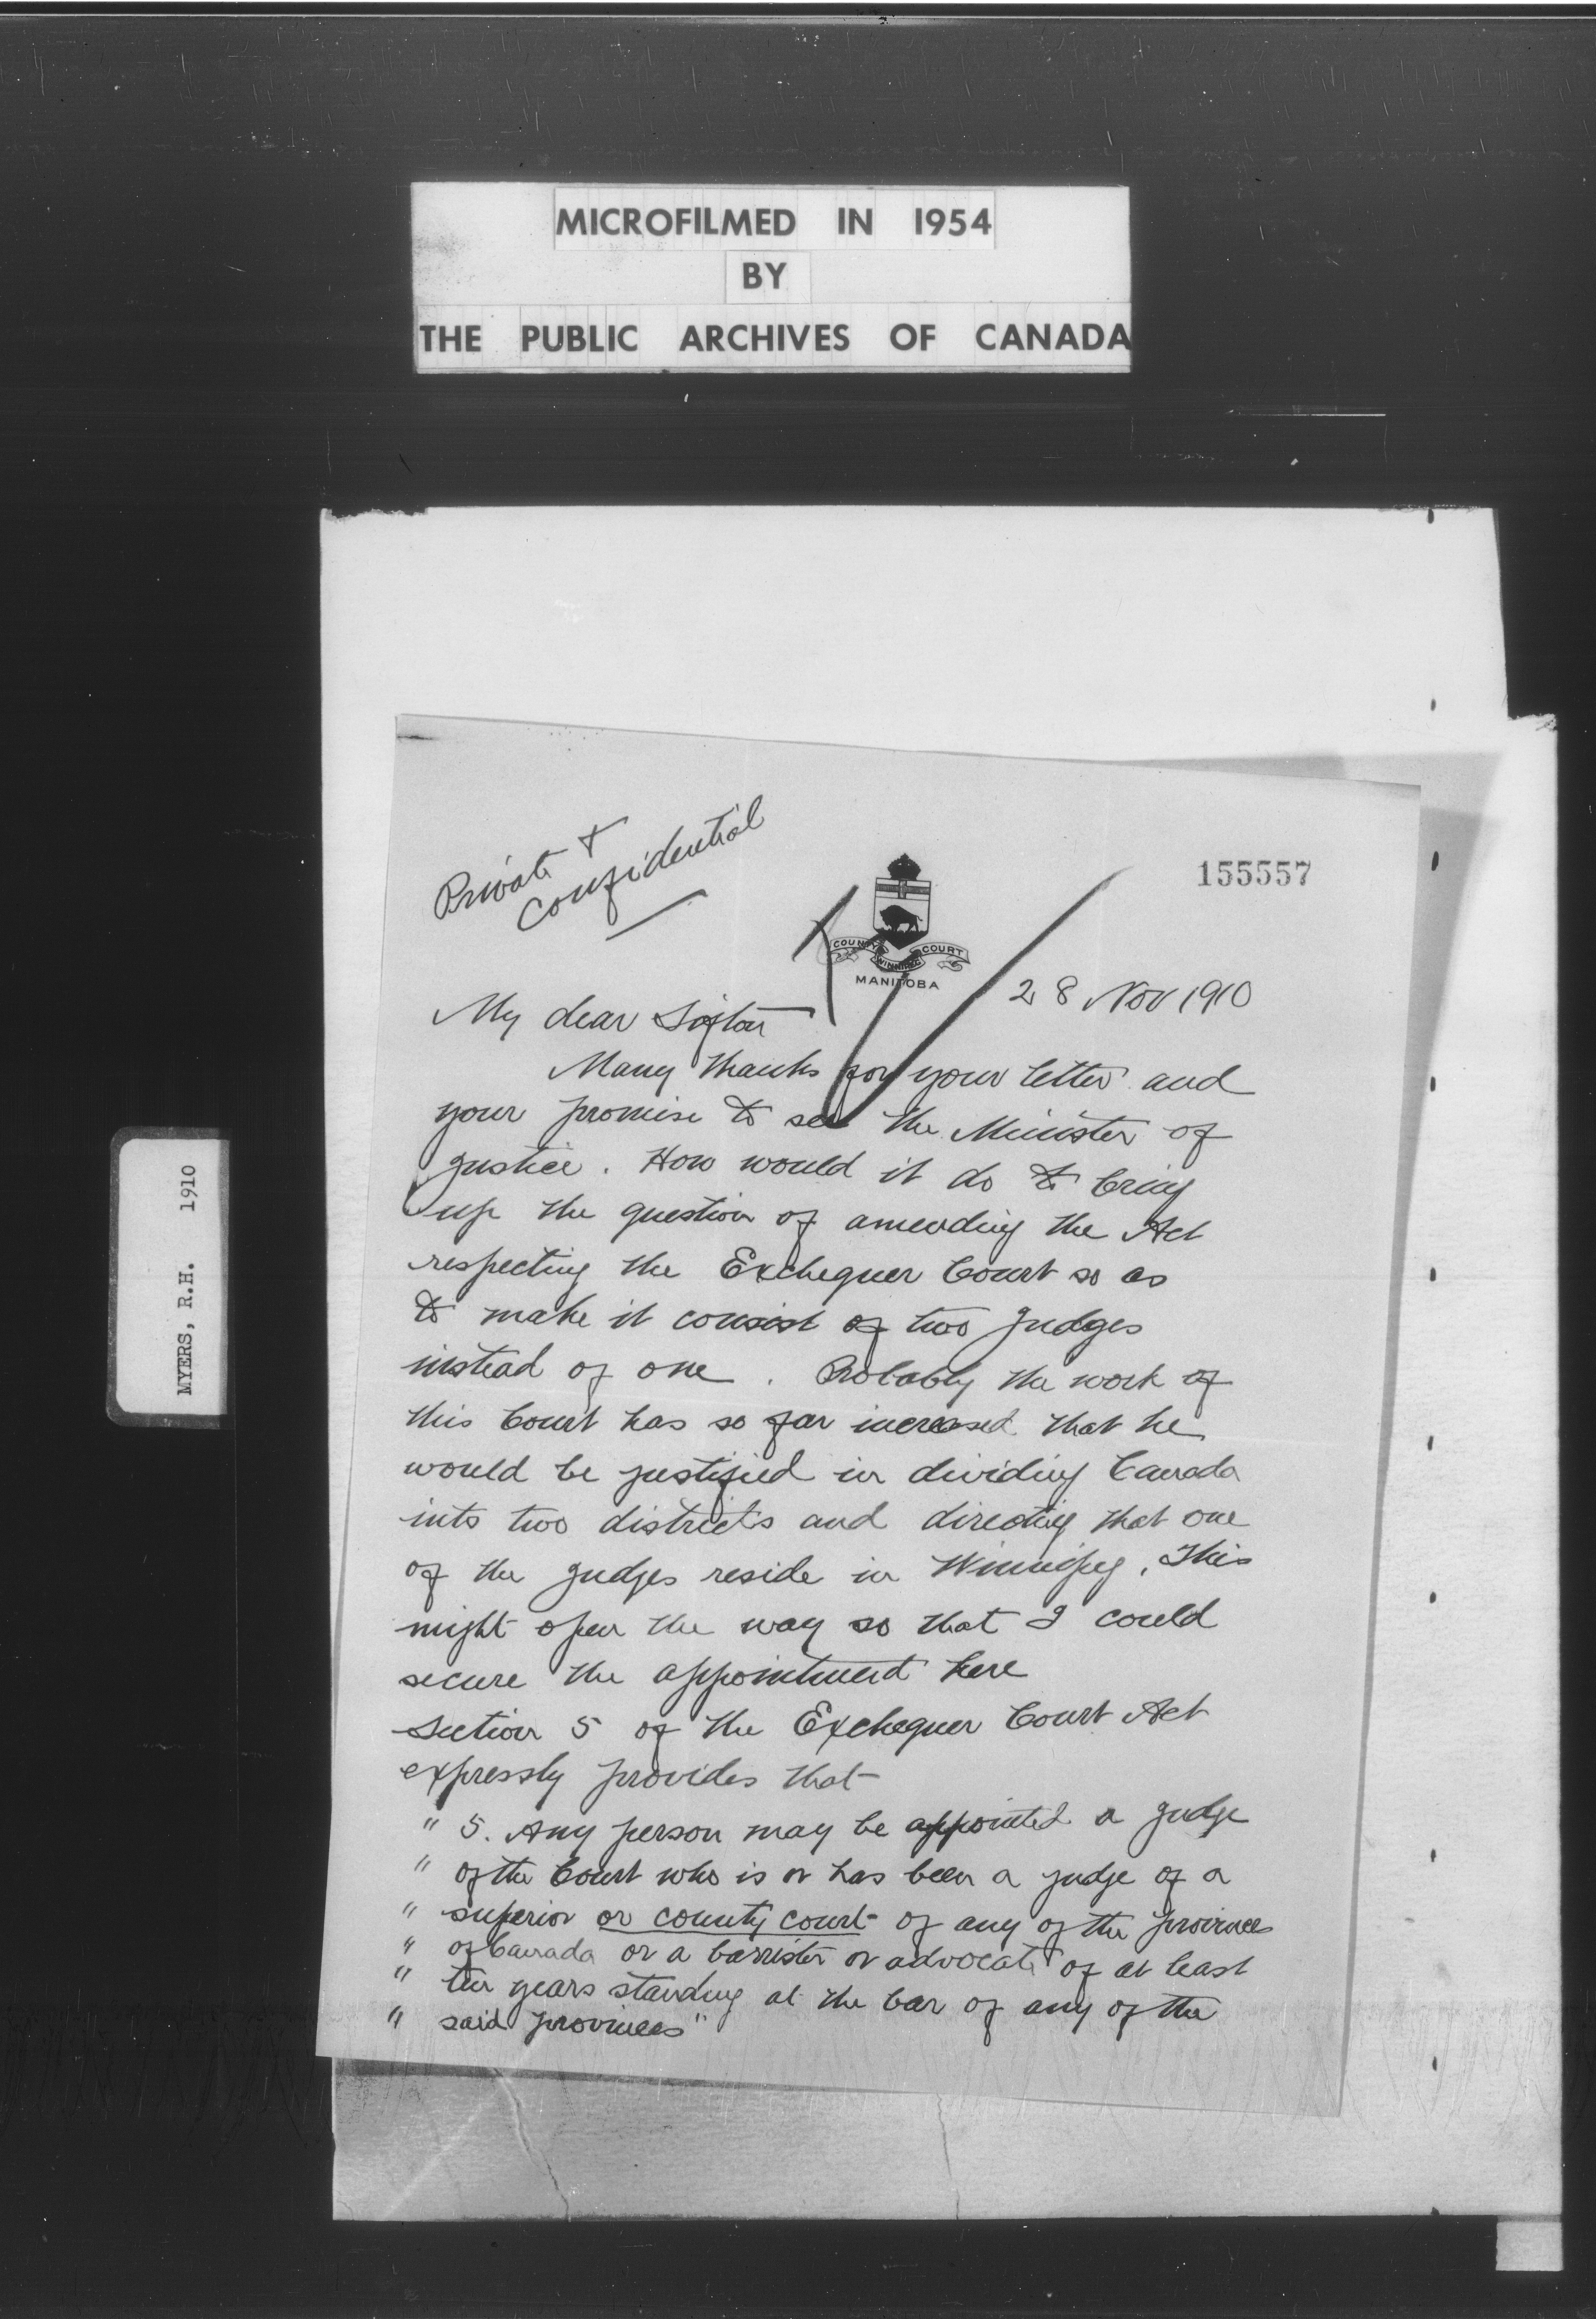 MICROFILMED IN 1954
BY
THE PUBLIC ARCHIVES OF CANADA
MYERS, R.H. 1910
Private &
Confidential
155557
COUNTY COURT
WINNIPEG
MANITOBA
28 Nov 1910
My dear Sifton
Many thanks for your letter and
your promise to see the Minister of
Justice. How would it do to bring
up the question of amending the Act
respecting the Exchequer Court so as
to make it consist of two Judges
instead of one. Probably the work of
this Court has so far increased that he
would be justified in dividing Canada
into two districts and directing that one
of the Judges reside in Winnipeg. This
might open the way so that I could
secure the appointment here
Section 5 of the Exchequer Court Act
expressly provides that
" 5. Any person may be appointed a judge
" of the Court who is or has been a judge of a
" superior or county court of any of the provinces
" of Canada or a barrister or advocate of at least
" ten years standing at the bar of any of the
" said provinces"